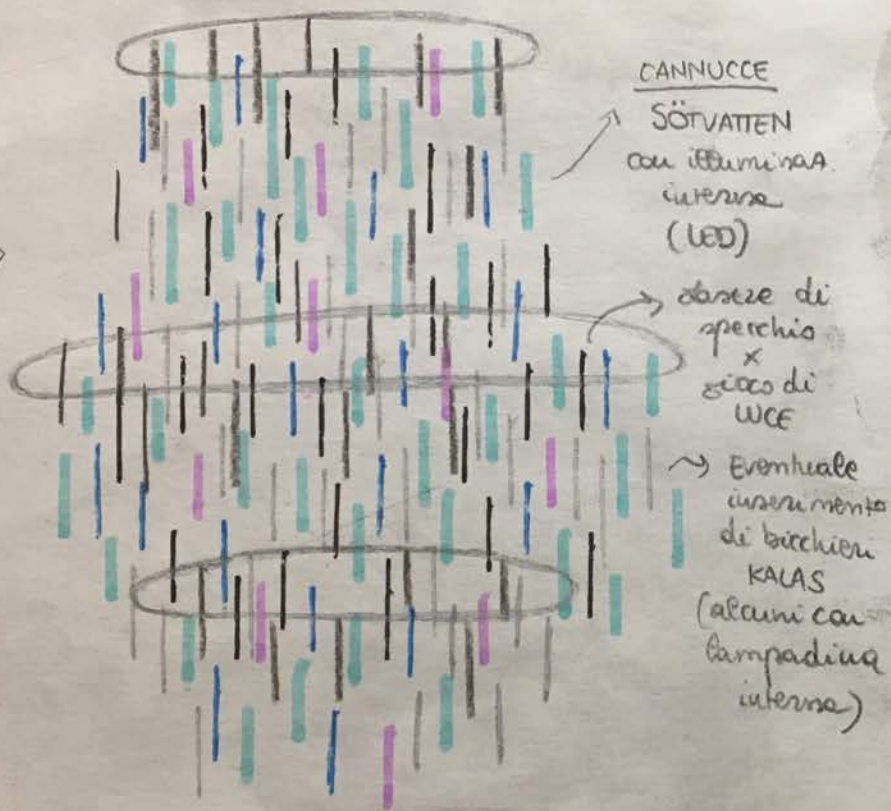 CANNUCCE
SÖTVATTEN
con illuminaz.
interna
(LED)
di
specchio
x
gioco di
LUCE
Eventuale
inserimento
di bicchieri
KALAS
(alcuni con
lampadina
interna)